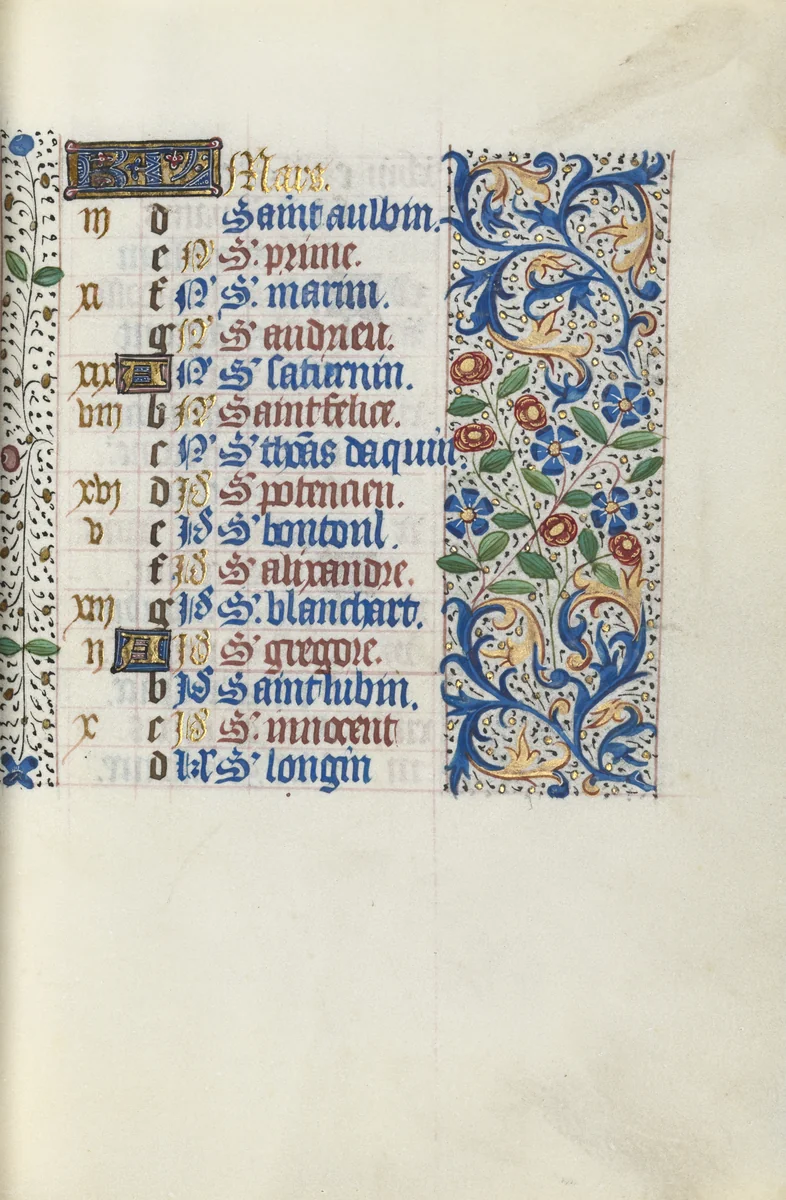 KL Mars.
iij d Saint aulbin.
e N S. prime.
xi f N S. marin.
g N S andrieu.
xix A N S saturnin.
viij b N Saint felice.
c N S thoãs daquin.
xvj d Id S potencien.
v e Id S bontoul.
f Id S alixandre.
xiij g Id S. blanchart.
ij A Id S gregore.
b Id Saint lubin.
x c Id S. innocent
d kl S longin